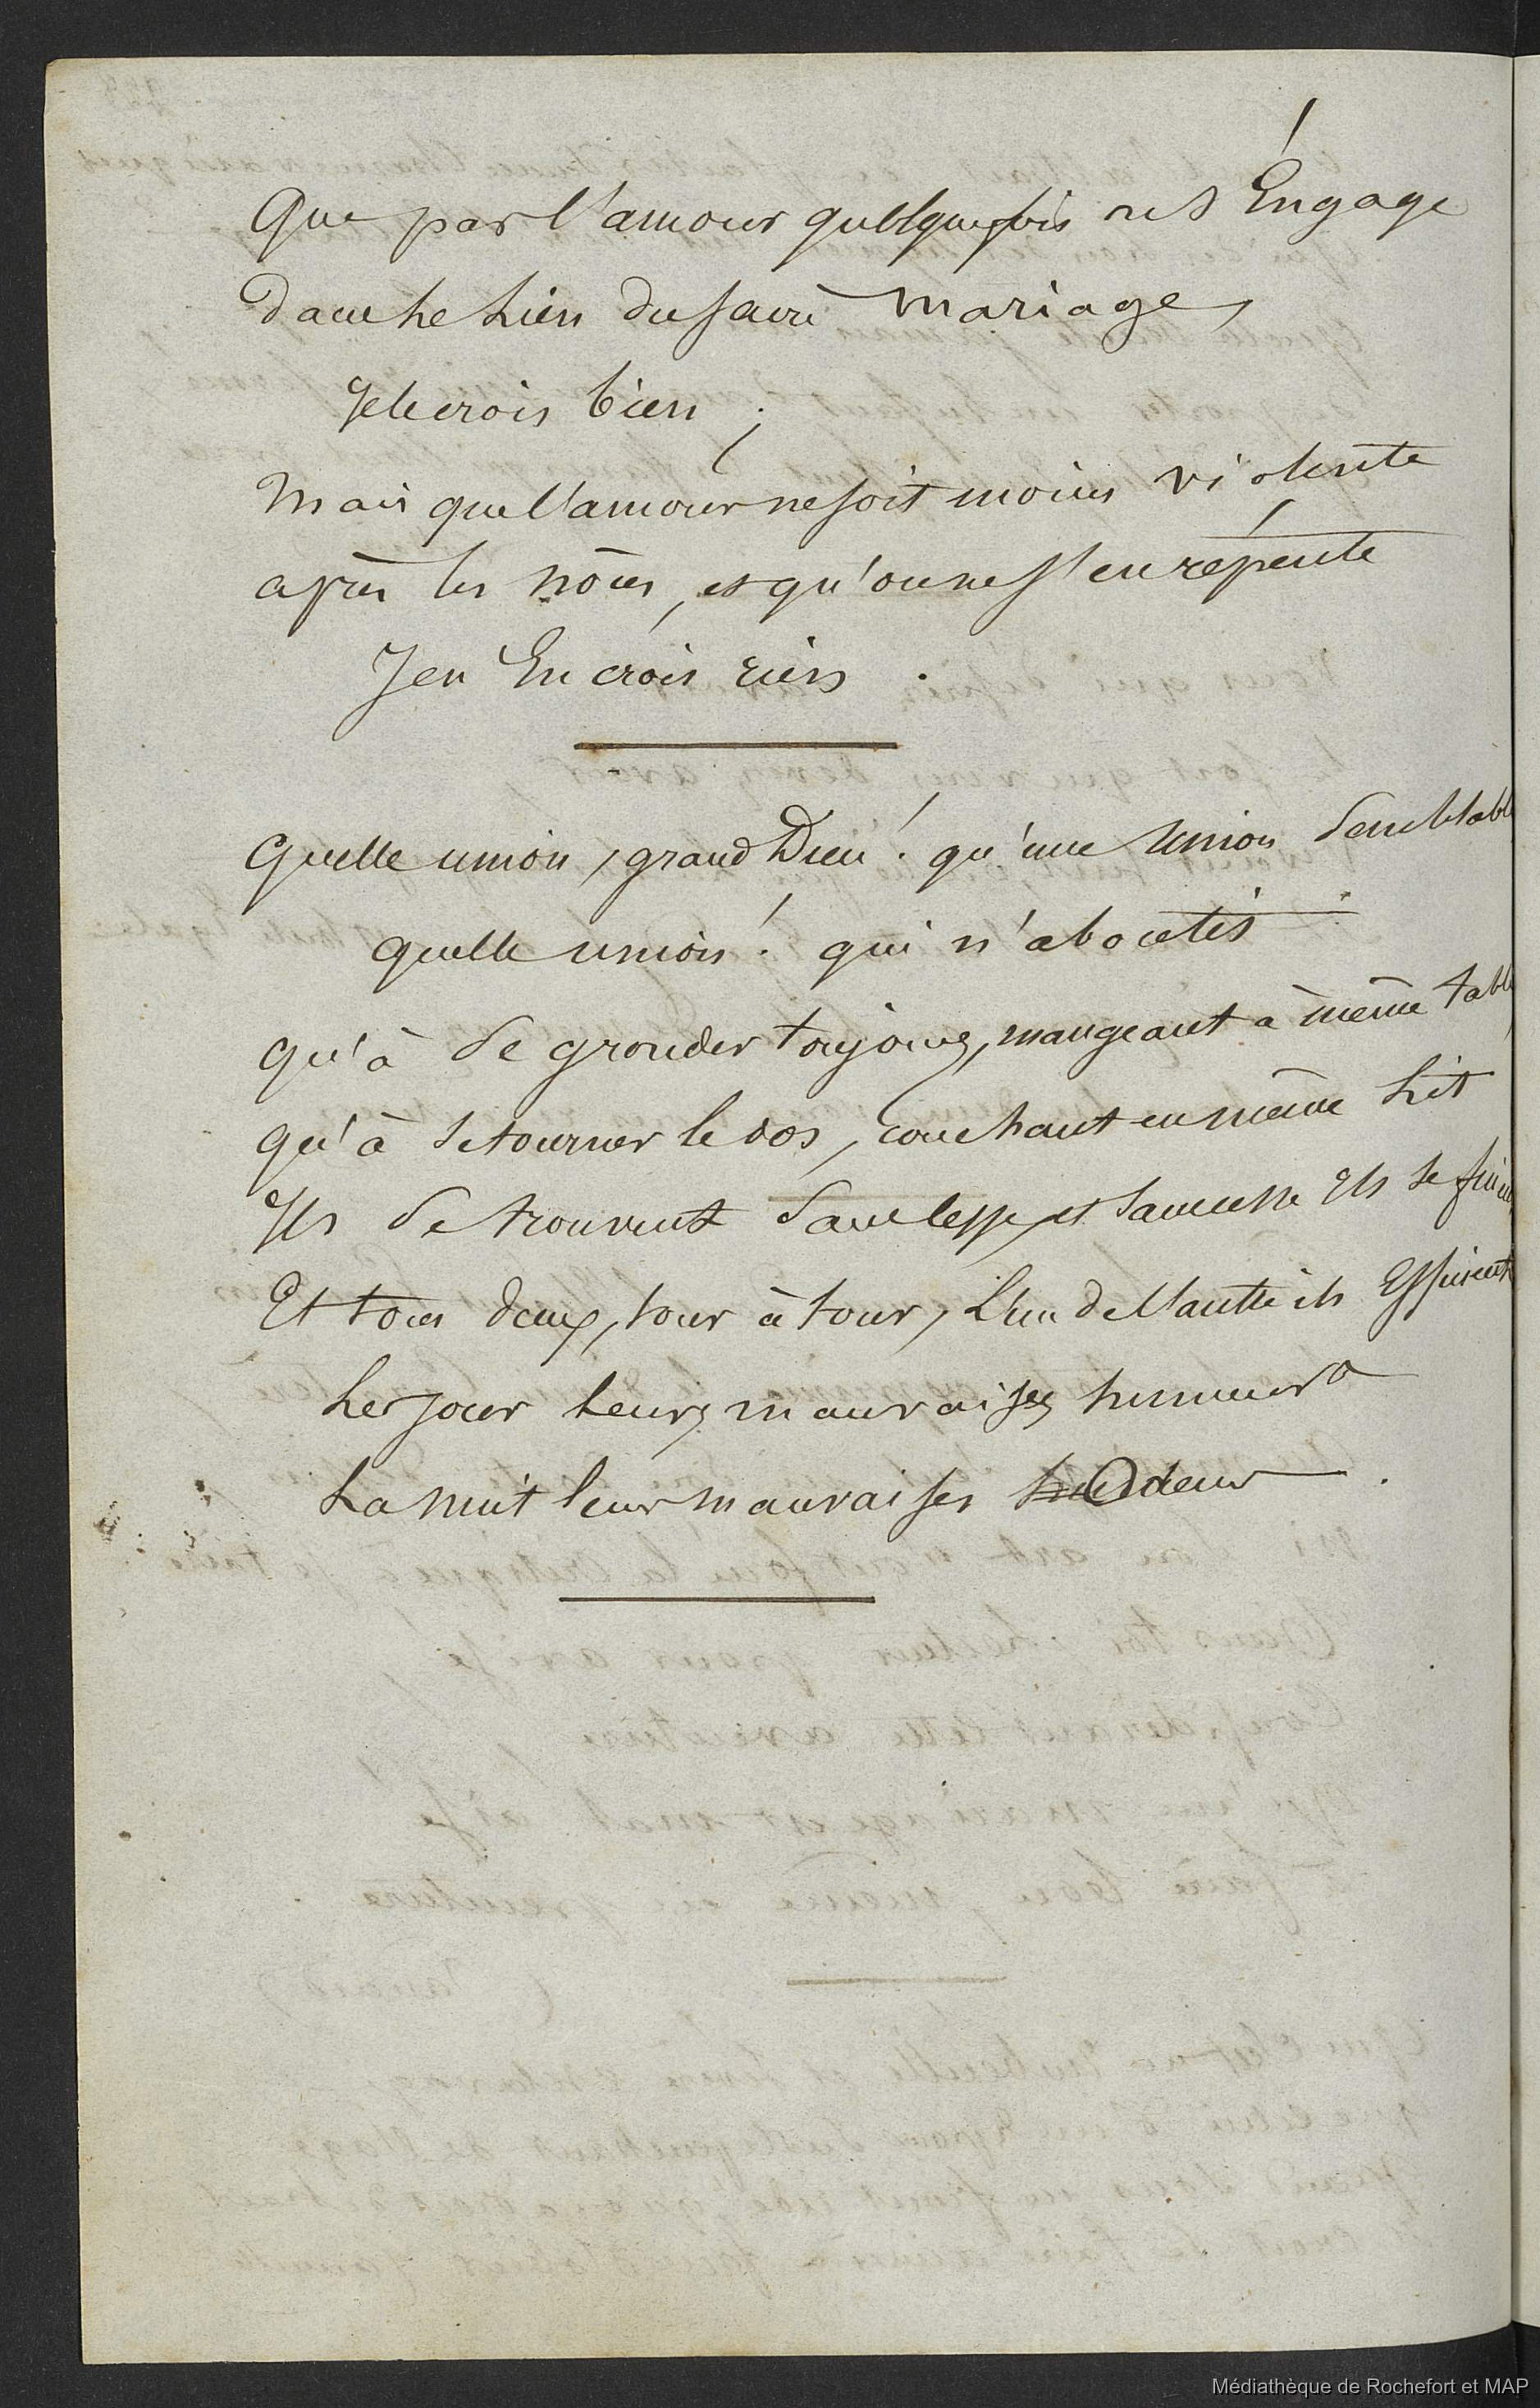 Que par l'amour quelquefois on s'Engage
dans le Lien du sacré Mariage,
Je le crois bien ;
Mais que l'amour ne soit moins violente
après les nôces, et qu'on ne s'en répente
Je n'En crois rien .
Quelle union, grand Dieu ! qu'une Union Semblabl
quelle union ! qui n'aboutis
qu'à Se gronder toujours, mangeant à même tabl
qu'à Se tourner le dos, couchant en même Lit
Ils Se trouvent Sans cesse et Sans cesse Ils Se fui
Et tous deux, tour à tour, L'un de l'autre ils Essuient
Le jour Leurs mauvaises humeurs
La nuit leur mauvaises Odeur .
Médiathèque de Rochefort et MAP